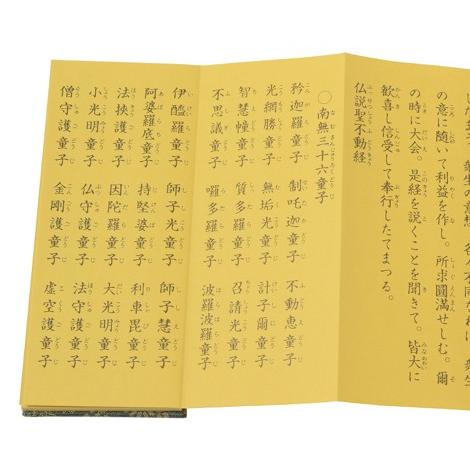 の意に随いて利益を作し。所求圓満せしむ。爾
の時に大会。是経を説くことを聞きて。皆大に
歓喜し信受して奉行したてまつる。
仏説聖不動経
○南無三十六童子
矜迦羅童子 制吒迦童子 不動恵童子
光網勝童子 無垢光童子 計子爾童子
智慧幢童子 質多羅童子 召請光童子
不思議童子 囉多羅童子 波羅波羅童子
伊醯羅童子 師子光童子 師子慧童子
阿婆羅底童子 持堅婆童子 利車毘童子
法挾護童子 因陀羅童子 大光明童子
小光明童子 仏守護童子 法守護童子
僧守護童子 金剛護童子 虚空護童子